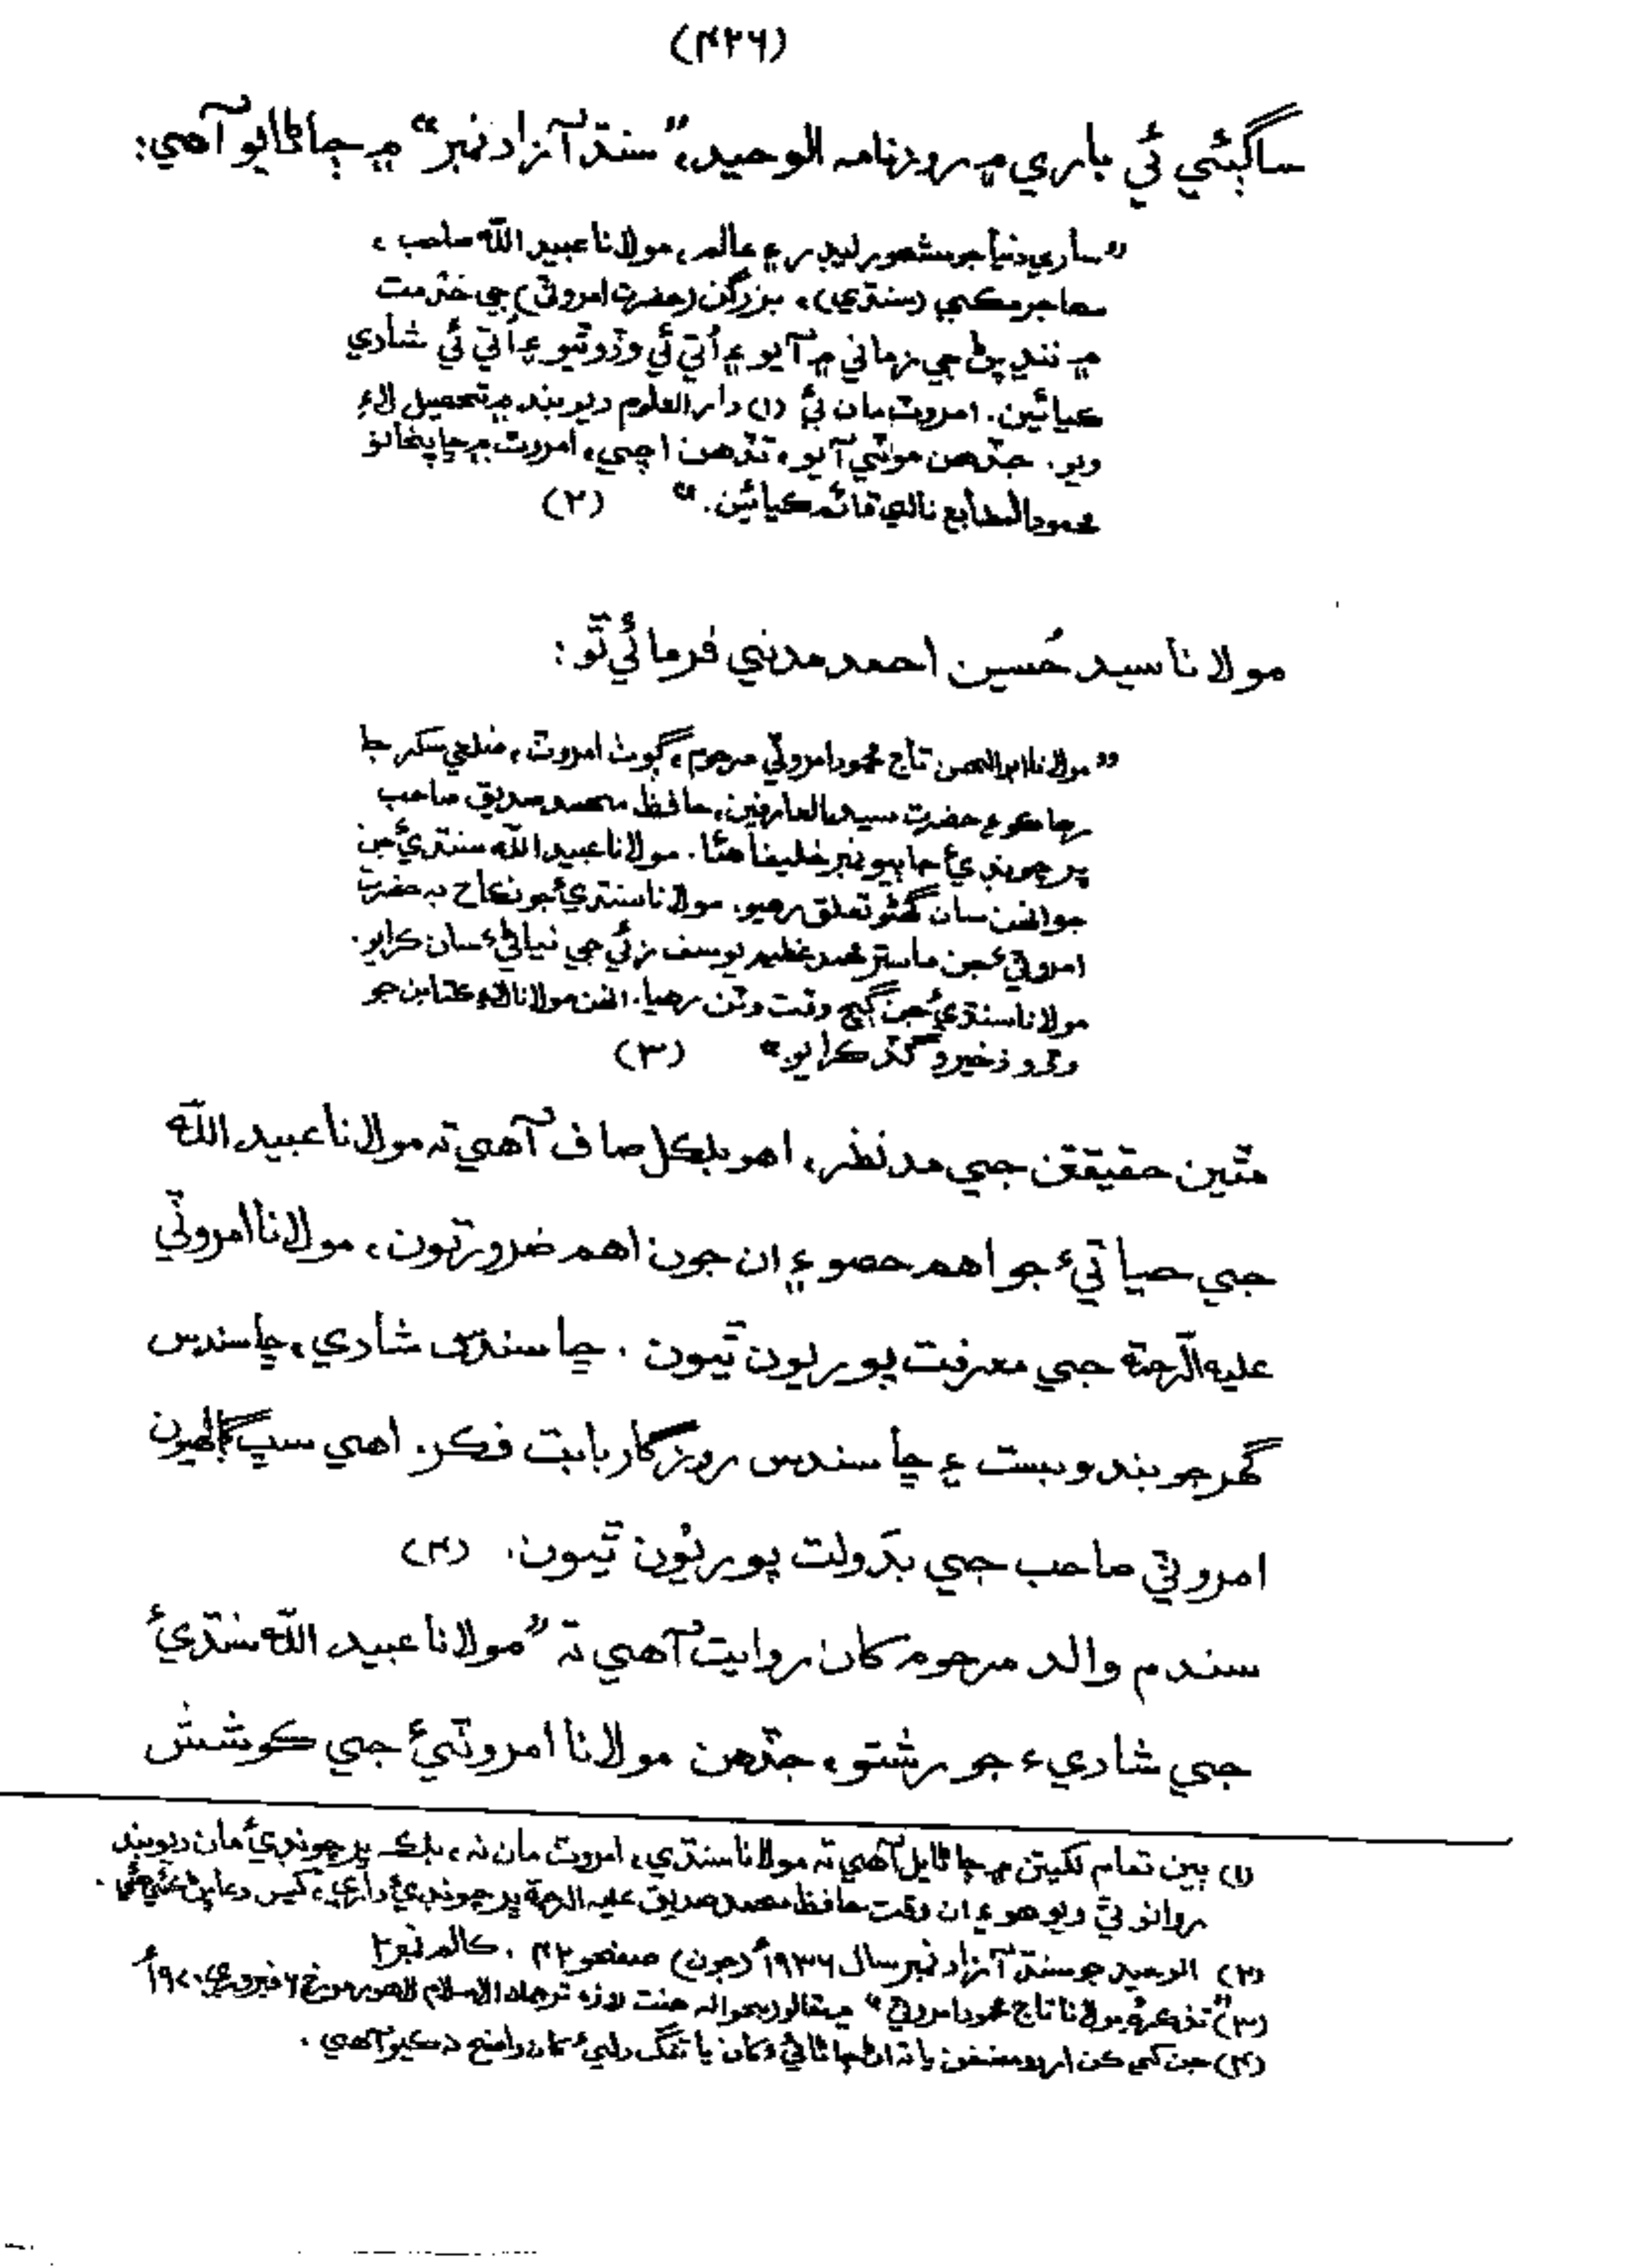 (۴۲۶)
ساڳئي ئي باري ۾ روزنامہ الوحيد، ”سنڌ آزاد نمبر“ ۾ ڄاڻايو آهي:
”ساري دنيا جو مشهور ليڊر ۽ عالم، مولانا عبيدالله صاحب،
مهاجر مڪي (سنڌي)، بزرگن (حضرت امروٽي) جي خدمت
۾ ننڍپڻ جي زماني ۾ آيو ۽ اُتي ئي وڏو ٿيو ۽ اُتي ئي شادي
ڪيائين. امروٽ مان ئي (۱) دارالعلوم ديوبند ۾ تحصيل لاءِ
ويو. جڏهن موٽي آيو، تڏهن اچي، امروٽ ۾ ڇاپخانو
محمودالمطابع نالي قائم ڪيائين.“ (۲)
مولانا سيد حُسين احمد مدني فرمائي ٿو:
”مولانا ابوالحسن تاج محمود امروٽي مرحوم، ڳوٺ امروٽ، ضلعي سکر جا
رهاڪو ۽ حضرت سيدالعارفين، حافظ محمد صديق صاحب
ڀرچونڊيءَ جا ٻيو نمبر خليفا هئا. مولانا عبيدالله سنڌيءَ جن
جو انهن سان گهڻو تعلق رهيو. مولانا سنڌيءَ جو نڪاح بہ حضرت
امروٽيءَ جن ماستر محمد عظيم يوسف زئي جي نياڻيءَ سان ڪرايو.
مولانا سنڌيءَ جن ڳچ وقت وٽن رهيا. انهن مولانا لاءِ ڪتابن جو
وڏو ذخيرو گڏ ڪرايو“ (۳)
مٿين حقيقتن جي مدنظر، اهو بلڪل صاف آهي تہ مولانا عبيدالله
جي حياتيءَ جو اهم حصو ۽ ان جون اهم ضرورتون، مولانا امروٽي
عليہ الرحمة جي معرفت پوريون ٿيون. ڇا سندس شادي، ڇا سندس
گهر جو بندوبست ۽ ڇا سندس روزگار بابت فڪر. اهي سڀ ڳالهيون
امروٽي صاحب جي بدولت پوريون ٿيون. (۴)
سندم والد مرحوم کان روايت آهي تہ ”مولانا عبيدالله سنڌيءَ
جي شاديءَ جو رشتو، جڏهن مولانا امروٽيءَ جي ڪوشش
(۱) ٻين تمام لکيتن ۾ ڄاڻايل آهي تہ مولانا سنڌي، امروٽ مان نہ، بلڪ ڀرچونڊيءَ مان ديوبند
روانو ٿي ويو هو ۽ ان وقت حافظ محمد صديق عليہ الرحمة ڀرچونڊيءَ واري، کيس دعا پڻ
(۲) الوحيد جو سنڌ آزاد نمبر سال ۱۹۳۶ع (جون) صفحو ۴۲، ڪالم نمبر ۲
(۳) ”تذڪرہ مولانا تاج محمود امروٽي“ مقالو بحوالہ هفت روزہ ترجمان الاسلام لاهور مورخ ۶ فيبروري ۱۹۷۰ع
(۴) جن کي ڪن اردو مصنفن يا تہ اڻڄاڻائيءَ کان يا تنگ دليءَ کان واضح نہ ڪيو آهي.